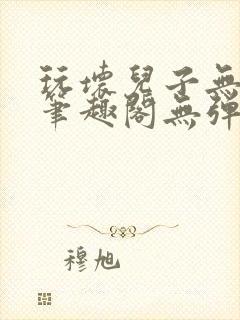 玩壞兒子無
筆趣閣無彈
穆旭